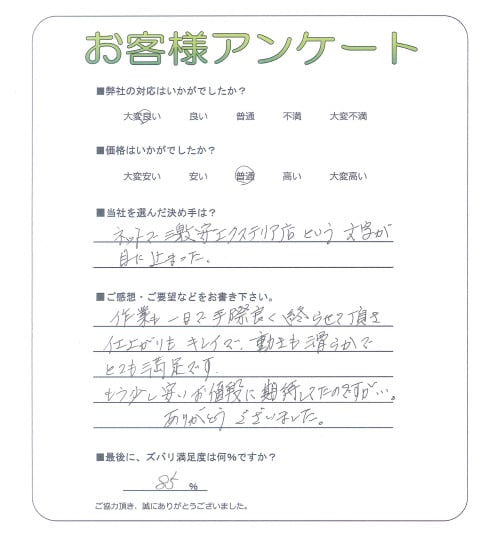 お客様アンケート
■弊社の対応はいかがでしたか？
大変良い 良い 普通 不満 大変不満
■価格はいかがでしたか？
大変安い 安い 普通 高い 大変高い
■当社を選んだ決め手は？
ネットで激安エクステリア店という文字が
目に止まった。
■ご感想・ご要望などをお書き下さい。
作業も一日で手際良く終らせて頂き
仕上がりもキレイで、動きも滑らかで
とても満足です。
もう少し安いお値段に期待してたのですが…。
ありがとうございました。
■最後に、ズバリ満足度は何%ですか？
85 %
ご協力頂き、誠にありがとうございました。